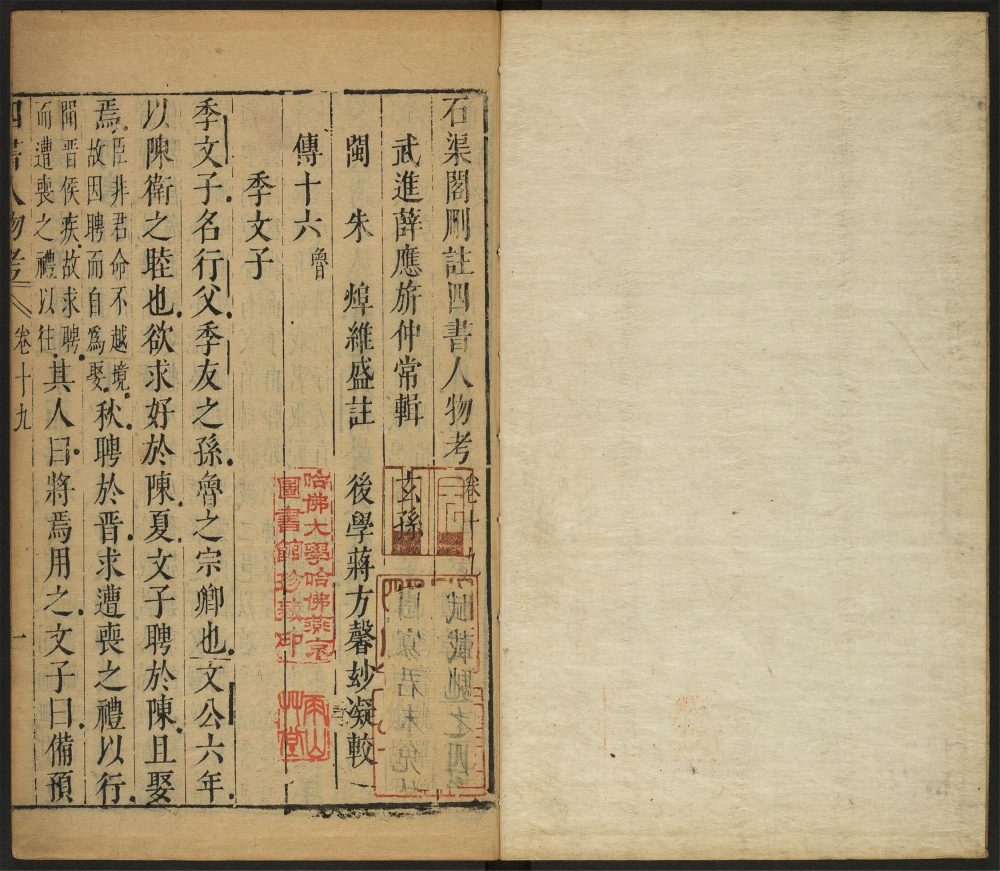 石渠閣刪註四書人物考 卷十九
武進薛應旂仲常輯 玄孫
閩 朱 焯維盛註 後學蔣方馨玅凝較
傳十六 魯
季文子
季文子名行父季友之孫魯之宗卿也文公六年
以陳衛之睦也欲求好於陳夏文子聘於陳且娶
焉 臣非君命不越境
故因聘而自爲娶 秋聘於晉求遭喪之禮以行
聞晉侯疾故求聘
而遭喪之禮以往 其人曰將焉用之文子曰備預
四書人物考 卷十九 一
哈佛大學哈佛燕京
圖書館珍藏印